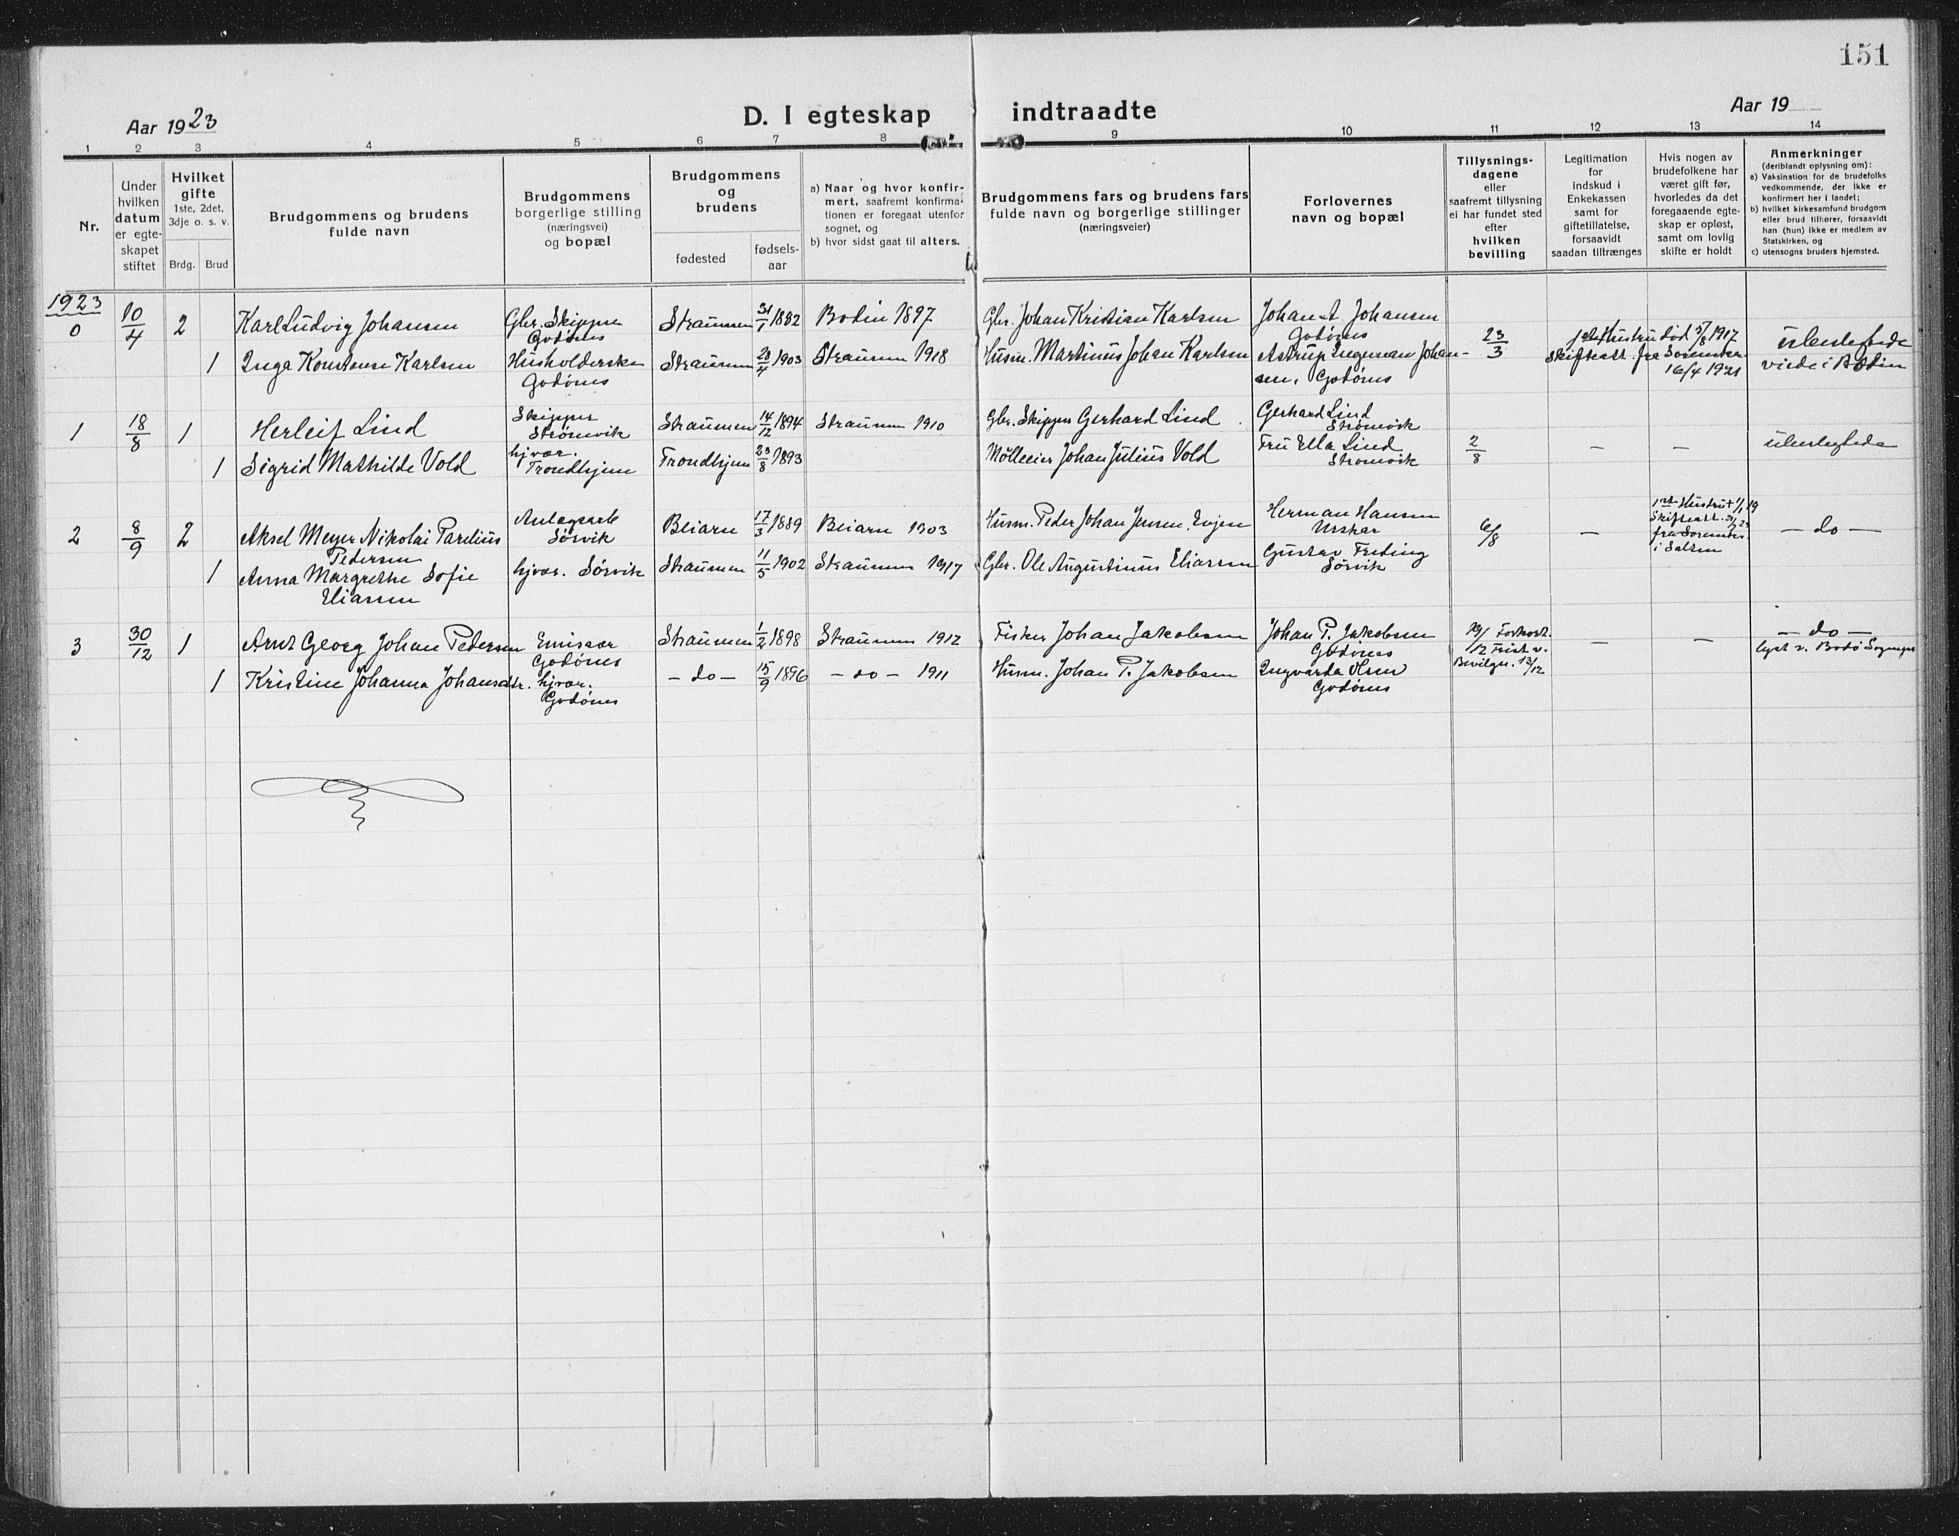 151
Aar 1923
D. I egteskap indtraadte
Aar 19
1 2 3 4 5 6 7 8 9 10 11 12 13 14
Nr.
Under
hvilken
datum
er egte-
skapet
stiftet
Hvilket
gifte
1ste, 2det,
3dje o. s. v.
Brdg. Brud
Brudgommens og brudens
fulde navn
Brudgommens
borgerlige stilling
(næringsvei)
og bopæl
Brudgommens
og
brudens
fødested
fødsels-
aar
a) Naar og hvor konfir-
mert, saafremt konfirma-
tionen er foregaat utenfor
sognet, og
b) hvor sidst gaat til alters.
Brudgommens fars og brudens fars
fulde navn og borgerlige stillinger
(næringsveier)
Forlovernes
navn og bopæl
Tillysnings-
dagene
eller
saafremt tillysning
ei har fundet sted
efter
hvilken
bevilling
Legitimation
for
indskud i
Enkekassen
samt for
giftetillatelse,
forsaavidt
saadan tiltrænges
Hvis nogen av
brudefolkene har
været gift før,
hvorledes da det
foregaaende egte-
skap er opløst,
samt om lovlig
skifte er holdt
Anmerkninger
(deriblandt oplysning om):
a) Vaksination for de brudefolks
vedkommende, der ikke er
konfirmert her i landet;
b) hvilket kirkesamfund brudgom
eller brud tilhører, forsaavidt
han (hun) ikke er medlem av
Statskirken, og
c) utensogns bruders hjemsted.
1923
0 10/4 2 Karl Ludvig Johansen Gbr. Skipper Straumen 31/1 1882 Bodin 1897 Gbr. Johan Kristian Karlsen Johan A Johansen
Godønes Godønes
1 Inga Konstanse Karlsen Husholderske Straumen 20/4 1903 Straumen 1918 Husm. Martinus Johan Karlsen Astrup Ingeman Johan- 23/3
Godønes sen, Godønes
Hustru død 3/8 1917
Skifteatt. fra Sorenskr.
16/4 1921
ubeslegtede
viede i Bodin
1 18/8 1 Herleif Lind Skipper Straumen 14/12 1894 Straumen 1910 Gbr. Skipper Gerhard Lind Gerhard Lind
Strømvik Strømvik
1 Sigrid Mathilde Vold hjvær. Trondhjem 23/8 1893 Mølleeier Johan Julius Vold Fru Ella Lind 2/8 – – ubeslegtede
Trondhjem Strømvik
2 8/9 2 Aksel Meyer Nikolai Parelius Anlegsarb Beiarn 17/3 1889 Beiarn 1903 Husm. Peder Johan Jensen Evjen Herman Hansen 6/8 – – do –
Pedersen Sørvik
1 Anna Margrethe Sofie hjvær. Sørvik Straumen 11/5 1902 Straumen 1917 Gbr. Ole Augustinus Eliassen Gustav Freding
Eliassen Sørvik
1ste Hustru + 1/1 19
Skifteatt.
fra Sorenskr.
i Salten
3 30/12 1 Arnt Georg Johan Pedersen Emissær Straumen 1/2 1898 Straumen 1912 Fisker Johan Jakobsen Johan P. Jakobsen – – – do –
Godønes Godønes
1 Kristine Johanna Johansdtr. hjvær. – do – 15/9 1896 – do – 1911 Husm. Johan P. Jakobsen Ingvarda Olsen
Godønes Godønes
Forkort.
12 Frist v.
Bevilgn. 13/12
lyst v. Bodø Sogneprest